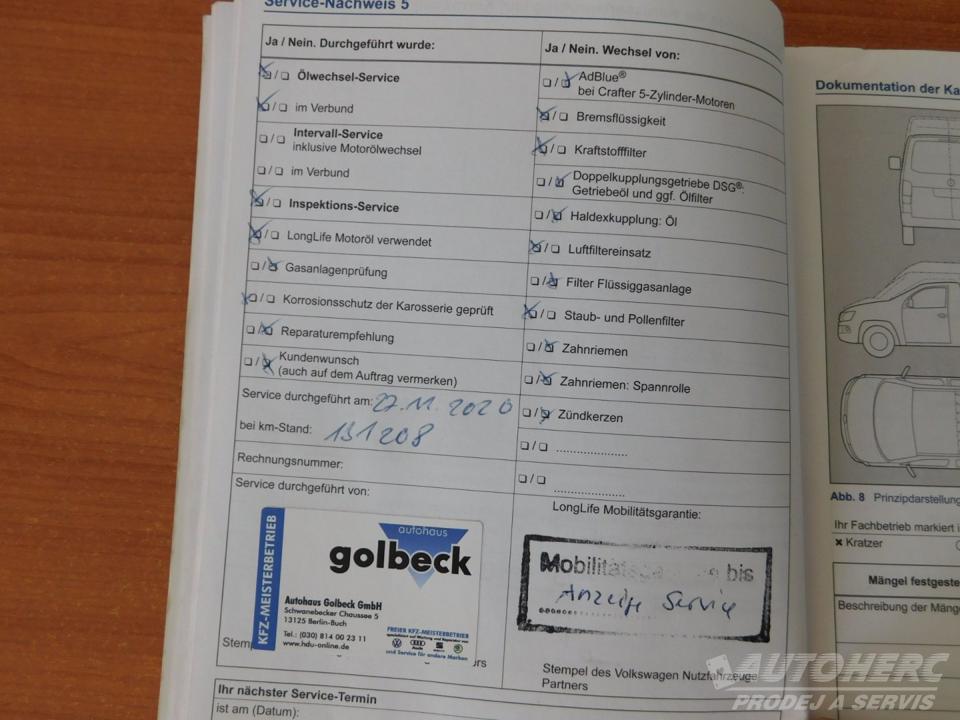 Service-Nachweis 5
Ja / Nein. Durchgeführt wurde:
/ Ölwechsel-Service
/ im Verbund
/ Intervall-Service
inklusive Motorölwechsel
/ im Verbund
/ Inspektions-Service
/ LongLife Motoröl verwendet
/ Gasanlagenprüfung
/ Korrosionsschutz der Karosserie geprüft
/ Reparaturempfehlung
/ Kundenwunsch
(auch auf dem Auftrag vermerken)
Service durchgeführt am: 27.11.2020
bei km-Stand: 131208
Rechnungsnummer:
Service durchgeführt von:
KFZ-MEISTERBETRIEB
autohaus
golbeck
Autohaus Golbeck GmbH
Schwanebecker Chaussee 5
13125 Berlin-Buch
Tel.: (030) 814 00 23 11
www.hdu-online.de
FREIER KFZ-MEISTERBETRIEB
spezialisiert auf Wartung und Reparatur von
und Service für andere Marken
Stem
Ja / Nein. Wechsel von:
/ AdBlue®
bei Crafter 5-Zylinder-Motoren
/ Bremsflüssigkeit
/ Kraftstofffilter
/ Doppelkupplungsgetriebe DSG®:
Getriebeöl und ggf. Ölfilter
/ Haldexkupplung: Öl
/ Luftfiltereinsatz
/ Filter Flüssiggasanlage
/ Staub- und Pollenfilter
/ Zahnriemen
/ Zahnriemen: Spannrolle
/ Zündkerzen
/ ......................
/ ......................
LongLife Mobilitätsgarantie:
Mobilitätsgarantie bis
Anzeige Service
Stempel des Volkswagen Nutzfahrzeuge
Partners
Ihr nächster Service-Termin
ist am (Datum):
Dokumentation der Ka
Abb. 8 Prinzipdarstellung
Ihr Fachbetrieb markiert i
× Kratzer
Mängel festgeste
Beschreibung der Mäng
AUTOHERC
PRODEJ A SERVIS